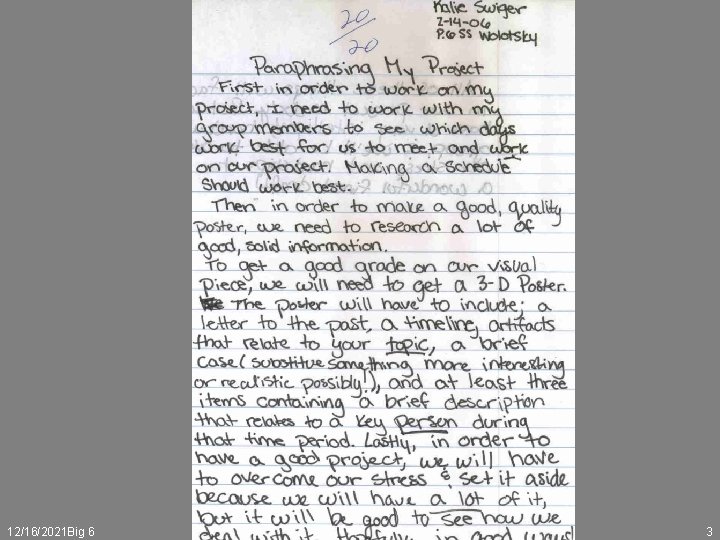 Kalie Swiger
2-14-06
P.6 SS Wolotsky
20/20
Paraphrasing My Project
First in order to work on my
project, I need to work with my
group members to see which days
work best for us to meet and work
on our project. Making a schedule
should work best.
Then in order to make a good, quality
poster, we need to research a lot of
good, solid information.
To get a good grade on our visual
piece, we will need to get a 3-D Poster.
The poster will have to include; a
letter to the past, a timeline, artifacts
that relate to your topic, a brief
case (substitue something more interesting
or realistic possibly!), and at least three
items containing a brief description
that relates to a key person during
that time period. Lastly, in order to
have a good project, we will have
to overcome our stress & set it aside
because we will have a lot of it,
but it will be good to see how we
deal with it. Hopfully, in good ways!
12/16/2021Big 6
3